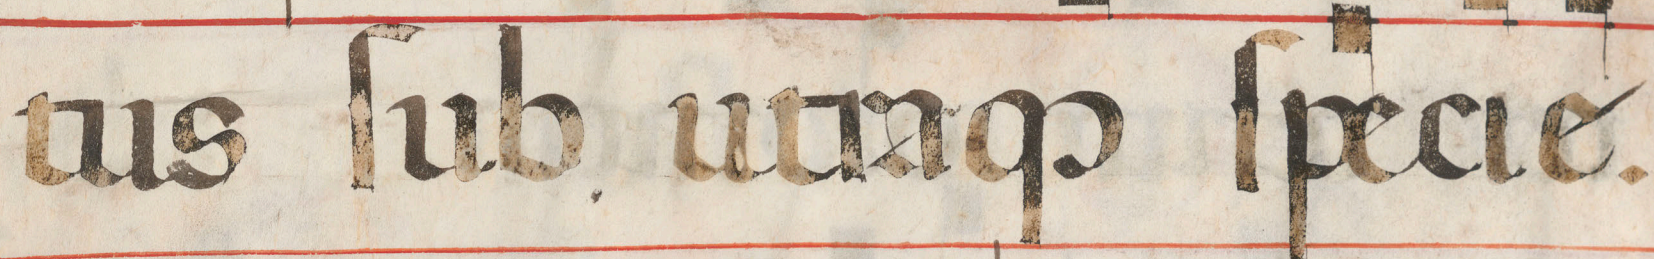 tus ſub utraqꝫ ſpecie.